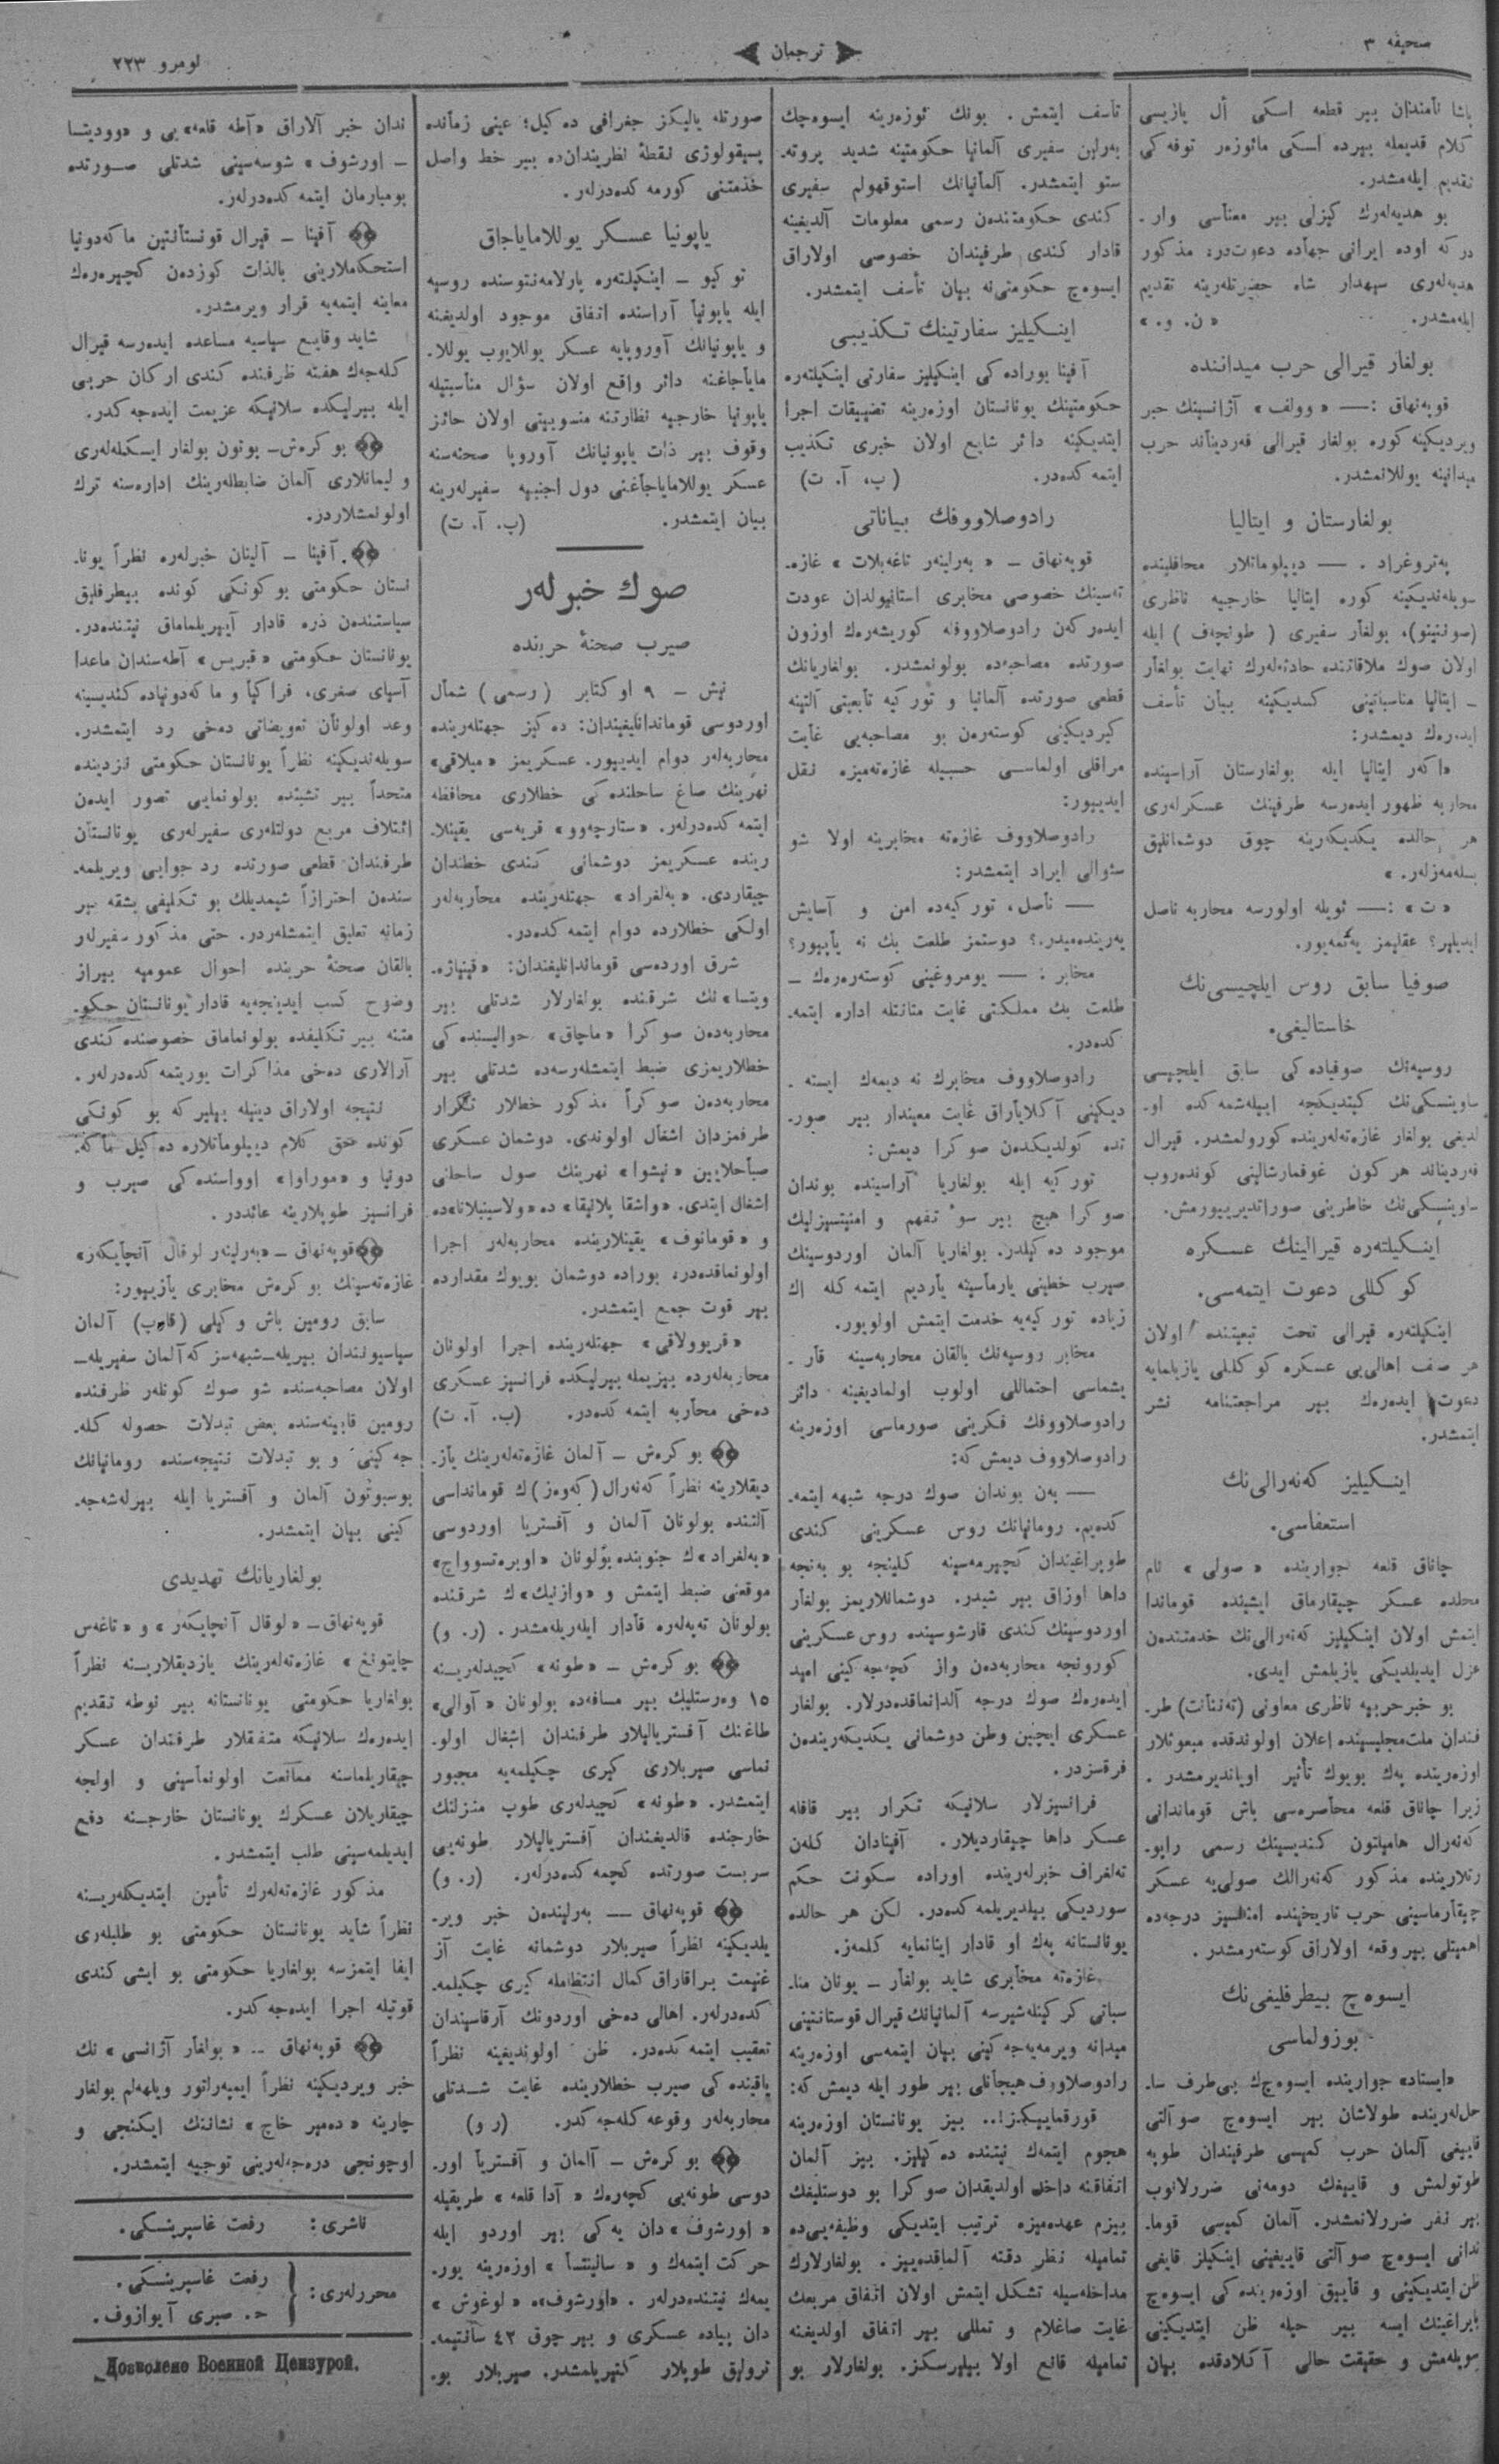 صحیفه ۳
ترجمان
نومرو ۲۲۳
پاشا نامندان بیر قطعه اسكی أل یازیسی
كلام قدیمله بیرده اسكی ماثوزهر توفه كی
تقدیم ایله‌مشدر.
بو هدیه‌لهرك كیزلی بیر معناسی وار.
دركه اوده ایرانی جهاده دعوت‌در؛ مذكور
هدیه‌لهری سپهدار شاه حضرتلهرینه تقدیم
ایله‌مشدر. «ن. و.»
بولغار قیرالی حرب میداننده
قوپه‌نهاق :— «وولف» آژانسینك خبر
ویردیكینه كوره بولغار قیرالی فهردیناند حرب
میدانینه یوللانمشدر.
بولغارستان و ایتالیا
پهتروغراد. — دیپلوماتلار محافلینده
سویله‌ندیكینه كوره ایتالیا خارجیه ناظری
(سوننینو)، بولغار سفیری (طونچهف) ایله
اولان صوك ملاقاتنده حادثه‌لهرك نهایت بولغار
ـ ایتالیا مناسباتینی كسدیكینه بیان تأسف
ایده‌رهك دیمشدر:
«اكهر ایتالیا ایله بولغارستان آراسینده
محاربه ظهور ایده‌رسه طرفینك عسكرلهری
هر حالده یكدیكهرینه چوق دوشمانلیق
بسله‌مه‌زلهر.»
«ت» :— ئویله اولورسه محاربه ناصل
ایدیلیر؟ عقلیمز یه‌تمه‌یور.
صوفیا سابق روس ایلچیسی‌نك
خاستالیغی.
روسیه‌نك صوفیاده‌كی سابق ایلچیسی
ساوینسكی‌نك كیتدیكجه اییلهشمه‌كده او.
لدیغی بولغار غازه‌ته‌لهرینده كورولمشدر. قیرال
فهردیناند هركون غوفمارشالینی كونده‌روب
ساوینسكی‌نك خاطرینی صوراتدیریورمش.
اینكیلتهره قیرالینك عسكره
كوكللی دعوت ایتمه‌سی.
اینكیلتهره قیرالی تحت تبعیتنده اولان
هر صف اهالی‌یی عسكره كوكللی یازیلمایه
دعوت ایده‌رهك بیر مراجعتنامه نشر
ایتمشدر.
اینكیلیز كه‌نهرالی‌نك
استعفاسی.
چاناق قلعه جوارینده «صولی» نام
محلده عسكر چیقارماق ایشینده قوماندا
ایتمش اولان اینكیلیز كه‌نهرالی‌نك خدمتندهن
عزل ایدیلدیكی یازیلمش ایدی.
بو خبر حربیه ناظری معاونی (تهننانت) طر.
فندان ملت‌مجلیسینده اعلان اولوندقده مبعوثلار
اوزه‌رینده پهك بویوك تأثیر اویاندیرمشدر.
زیرا چاناق قلعه محاصره‌سی باش قوماندانی
كه‌نهرال هامیلتون كندیسینك رسمی راپو.
رتلارینده مذكور كه‌نهرالك صولی‌یه عسكر
چیقارماسینی حرب تاریخینده امثالسیز درجه‌ده
اهمیتلی بیر وقعه اولاراق كوستهرمشدر.
ایسوهچ بیطرفلیغی‌نك
بوزولماسی
«ایستاد» جوارینده ایسوهچ‌ك بی‌طرف سا.
حل‌لهرینده طولاشان بیر ایسوهچ صو آلتی
قاییغی آلمان حرب كمیسی طرفیندان طوپه
طوتولمش و قاییغك دومه‌نی ضررلانوب
بیر نفر ضررلانمشدر. آلمان كمیسی قوما.
ندانی ایسوهچ صو آلتی قاییغینی اینكیلیز قایغی
ظن ایتدیكینی و قاییق اوزه‌رینده‌كی ایسوهچ
بایراغینك ایسه بیر حیله ظن ایتدیكینی
سویله‌مش و حقیقت حالی آكلادقده بیان
تأسف ایتمش. بونك ئوزه‌رینه ایسوهچك
بهرلین سفیری آلمانیا حكومتینه شدید پروته.
ستو ایتمشدر. آلمانیانك استوقهولم سفیری
كندی حكومتندهن رسمی معلومات آلدیغینه
قادار كندی طرفیندان خصوصی اولاراق
ایسوهچ حكومتی‌نه بیان تأسف ایتمشدر.
اینكیلیز سفارتینك تكذیبی
آفینا بوراده‌كی اینكیلیز سفارتی اینكیلتهره
حكومتینك یونانستان اوزه‌رینه تضییقات اجرا
ایتدیكینه دائر شایع اولان خبری تكذیب
ایتمه‌كده‌در. (پ. آ. ت)
رادوصلاووفك بیاناتی
قوپه‌نهاق ـ «بهرلینهر تاغه‌بلات» غازه.
ته‌سینك خصوصی مخابری استانبولدان عودت
ایدهركهن رادوصلاووفله كوریشه‌رهك اوزون
صورتده مصاحبه‌ده بولونمشدر. بولغاریانك
قطعی صورتده آلمانیا و توركیه تأبعیتی آلتینه
كیردیكینی كوستهرهن بو مصاحبه‌یی غایت
مراقلی اولماسی حسبیله غازه‌ته‌میزه نقل
ایدییور:
رادوصلاووف غازه‌ته مخابرینه اولا شو
سئوالی ایراد ایتمشدر:
— ناصل، توركیه‌ده امن و آسایش
یهرینده‌میدر؟ دوستمز طلعت بك نه یاپیور؟
مخابر: — یومروغینی كوستهره‌رهك ـ
طلعت بك مملكتی غایت متانتله اداره ایتمه.
كده‌در.
رادوصلاووف مخابرك نه دیمهك ایسته.
دیكینی آكلایاراق غایت معنیدار بیر صور.
تده كولدیكدهن صوكرا دیمش:
توركیه ایله بولغاریا آراسینده بوندان
صوكرا هیچ بیر سوٴ تفهم و امنیتسیزلیك
موجود دهكیلدر. بولغاریا آلمان اوردوسینك
صیرب خطینی یارماسینه یاردیم ایتمه‌كله اك
زیاده توركیه‌یه خدمت ایتمش اولویور.
مخابر روسیه‌نك بالقان محاربه‌سینه قار.
یشماسی احتماللی اولوب اولمادیغینه دائر
رادوصلاووفك فكرینی صورماسی اوزه‌رینه
رادوصلاووف دیمش كه:
— بهن بوندان صوك درجه شبهه ایتمه.
كده‌یم. رومانیانك روس عسكرینی كندی
طوپراغیندان كچیرمه‌سینه كلینجه بو بهنجه
داها اوزاق بیر شیدر. دوشمانلاریمز بولغار
اوردوسینك كندی قارشوسینده روس عسكرینی
كورونجه محاربه‌دهن واز كچه‌جه‌كینی امید
ایده‌رهك صوك درجه آلدانماقده‌درلار. بولغار
عسكری ایچین وطن دوشمانی یكدیكهریندهن
فرقسزدر.
فرانسیزلار سلانیكه تكرار بیر قافله
عسكر داها چیقاردیلار. آفینادان كلهن
تهلغراف خبرلهرینده اوراده سكونت حكم
سوردیكی بیلدیریلمه‌كده‌در. لكن هر حالده
یونانستانه پهك او قادار اینانمایه كلمه‌ز.
غازه‌ته مخابری شاید بولغار ـ یونان منا.
سباتی كركینلهشیرسه آلمانیانك قیرال قوستانتینی
میدانه ویرمه‌یه‌جه‌كینی بیان ایتمه‌سی اوزه‌رینه
رادوصلاووف هیجانلی بیر طور ایله دیمش كه:
قورقماییكز!.. بیز یونانستان اوزه‌رینه
هجوم ایتمهك نیتنده دهكیلیز. بیز آلمان
اتفاقنه داخل اولدیقدان صوكرا بو دوستلیغك
بیزم عهده‌میزه ترتیب ایتدیكی وظیفه‌یی‌ده
تمامیله نظر دقته آلماقده‌ییز. بولغارلارك
مداخله‌سیله تشكل ایتمش اولان اتفاق مربعك
غایت صاغلام و تمللی بیر اتفاق اولدیغینه
تمامیله قانع اولا بیلیرسكز. بولغارلار بو
صورتله یالیكز جغرافی دهكیل؛ عینی زمانده
پسیقولوژی نقطهٔ نظریندان‌ده بیر خط واصل
خذمتنی كورمه‌كده‌درلهر.
یاپونیا عسكر یوللامایاجاق
توكیو ـ اینكیلتهره پارلامه‌نتوسنده روسیه
ایله یاپونیا آراسنده اتفاق موجود اولدیغنه
و یاپونیانك آوروپایه عسكر یوللایوب یوللا.
مایاجاغنه دائر واقع اولان سؤال مناسبتیله
یاپونیا خارجیه نظارتنه منسوبیتی اولان حائز
وقوف بیر ذات یاپونیانك آوروپا صحنه‌سنه
عسكر یوللامایاجاغنی دول اجنبیه سفیرلهرینه
بیان ایتمشدر. (پ. آ. ت)
صوك خبرلهر
صیرب صحنهٔ حربنده
نیش ـ ۹ اوكتابر (رسمی) شمال
اوردوسی قوماندانلیغیندان: دهكیز جهتلهرینده
محاربه‌لهر دوام ایدییور. عسكریمز «میلاقی»
نهرینك صاغ ساحلنده‌كی خطلاری محافظه
ایتمه‌كده‌درلهر. «ستارچه‌وو» قریه‌سی یقینلا.
رینده عسكریمز دوشمانی كندی خطندان
چیقاردی. «بهلغراد» جهتلهرینده محاربه‌لهر
اولكی خطلارده دوام ایتمه‌كده‌در.
شرق اورده‌سی قوماندانلیغندان: «قنیاژه.
ویتسا»نك شرقنده بولغارلار شدتلی بیر
محاربه‌دهن صوكرا «ماچاق» حوالیسنده‌كی
خطلاریمزی ضبط ایتمشلهرسه‌ده شدتلی بیر
محاربه‌دهن صوكرا مذكور خطلار تكرار
طرفمزدان اشغال اولوندی. دوشمان عسكری
صباحلایین «نیشوا» نهرینك صول ساحلنی
اشغال ایتدی. «واشقا پلانیقا» ده «ولاسینیلانا»ده
و «قومانوف» یقینلارینده محاربه‌لهر اجرا
اولونماقده‌در، بوراده دوشمان بویوك مقدارده
بیر قوت جمع ایتمشدر.
«قریوولاقی» جهتلهرینده اجرا اولونان
محاربه‌لهرده بیزیمله بیرلیكده فرانسیز عسكری
ده‌خی محاربه ایتمه‌كده‌در. (پ. آ. ت)
بوكرهش ـ آلمان غازه‌ته‌لهرینك یاز.
دیقلارینه نظراً كه‌نهرال (كهوهز)ك قومانداسی
آلتنده بولونان آلمان و آفستریا اوردوسی
«بهلغراد»ك جنوبنده بولونان «اوبرهنوواچ»
موقعنی ضبط ایتمش و «وازنیك»ك شرقنده
بولونان تهپه‌لهره قادار ایلهریله‌مشدر. (ر. و)
بوكرهش ـ «طونه» كچیدلهرینه
۱۵ وهرستلیك بیر مسافه‌ده بولونان «آوالی»
طاغنك آفستریالیلار طرفندان اشغال اولو.
نماسی صیربلاری كیری چكیلمه‌یه مجبور
ایتمشدر. «طونه» كچیدلهری طوپ منزلنك
خارجنده قالدیغندان آفستریالیلار طونه‌یی
سربست صورتده كچمه‌كده‌درلهر. (ر. و)
قوپه‌نهاق — بهرلیندهن خبر ویر.
یلدیكینه نظراً صیربلار دوشمانه غایت آز
غنیمت براقاراق كمال انتظامله كیری چكیلمه.
كده‌درلهر. اهالی ده‌خی اوردونك آرقاسیندان
تعقیب ایتمه‌كده‌در. ظن اولوندیغینه نظراً
یاقینده‌كی صیرب خطلارینده غایت شدتلی
محاربه‌لهر وقوعه كله‌جه‌كدر. (ر و)
بوكرهش ـ آلمان و آفستریا اور.
دوسی طونه‌یی كچه‌رهك «آدا قلعه» طریقیله
«اورشوف»دان یهكی بیر اوردو ایله
حركت ایتمهك و «سالینتسا» اوزه‌رینه یور.
یمهك نیتنده‌درلهر. «اورشوف»ه «لوغوش»
دان پیاده عسكری و بیر چوق ۴۲ سانتیمه.
ترولیق طوپلار كتیریلمشدر. صیربلار بو.
ندان خبر آلاراق «آطه قلعه»یی و «وودیتسا
ـ اورشوف» شوسه‌سینی شدتلی صورتده
بومباردمان ایتمه‌كده‌درلهر.
آفینا ـ قیرال قونستانتین ماكه‌دونیا
استحكاملارینی بالذات كوزدهن كچیره‌رهك
معاینه ایتمه‌یه قرار ویرمشدر.
شاید وقایع سیاسیه مساعده ایده‌رسه قیرال
كله‌جهك هفته ظرفنده كندی اركان حربی
ایله بیرلیكده سلانیكه عزیمت ایده‌جه‌كدر.
بوكرهش ـ بوتون بولغار ایسكله‌لهری
و لیمانلاری آلمان ضابطلهرینك اداره‌سنه ترك
اولونمشلاردر.
آفینا ـ آلینان خبرلهره نظراً یونا.
نستان حكومتی بوكونكی كونده بیطرفلیق
سیاستندهن ذره قادار آییریلماماق نیتنده‌در.
یونانستان حكومتی «قبریس» آطه‌سندان ماعدا
آسیای صغری، فراكیا و ماكه‌دونیاده كندیسینه
وعد اولونان تعویضاتی ده‌خی رد ایتمشدر.
سویله‌ندیكینه نظراً یونانستان حكومتی نزدینده
متحداً بیر تشبثده بولونمایی تصور ایدهن
ائتلاف مربع دولتلهری سفیرلهری یونانستان
طرفندان قطعی صورتده رد جوابی ویریلمه.
سندهن احترازاً شیمدیلك بو تكلیفی بشقه بیر
زمانه تعلیق ایتمشلهردر. حتی مذكور سفیرلهر
بالقان صحنهٔ حربنده احوال عمومیه بیراز
وضوح كسب ایدینجه‌یه قادار یونانستان حكو.
متنه بیر تكلیفده بولونماماق خصوصنده كندی
آرالاری ده‌خی مذاكرات یوریتمه‌كده‌درلهر.
نتیجه اولاراق دینیله بیلیر كه بو كونكی
كونده حق كلام دیپلوماتلارده دهكیل ماكه.
دونیا و «موراوا» اوواسنده‌كی صیرب و
فرانسیز طوپلارینه عائددر.
قوپه‌نهاق ـ «بهرلینهر لوقال آنچایكهر»
غازه‌ته‌سینك بوكرهش مخابری یازییور:
سابق رومین باش وكیلی (قارپ) آلمان
سیاسیونندان بیریله ـ شبهه‌سز كه آلمان سفیریله ـ
اولان مصاحبه‌سنده شو صوك كونلهر ظرفنده
رومین قابینه‌سنده بعض تبدلات حصوله كله.
جه‌كینی و بو تبدلات نتیجه‌سنده رومانیانك
بوسبوتون آلمان و آفستریا ایله بیرلهشه‌جه.
كینی بیان ایتمشدر.
بولغاریانك تهدیدی
قوپه‌نهاق ـ «لوقال آنچایكهر» و «تاغهس
چایتونغ» غازه‌ته‌لهرینك یازدیقلارینه نظراً
بولغاریا حكومتی یونانستانه بیر نوطه تقدیم
ایده‌رهك سلانیكه متفقلار طرفندان عسكر
چیقاریلماسنه ممانعت اولونماسینی و اولجه
چیقاریلان عسكرك یونانستان خارجنه دفع
ایدیلمه‌سینی طلب ایتمشدر.
مذكور غازه‌ته‌لهرك تأمین ایتدیكلهرینه
نظراً شاید یونانستان حكومتی بو طلبلهری
ایفا ایتمزسه بولغاریا حكومتی بو ایشی كندی
قوتیله اجرا ایده‌جه‌كدر.
قوپه‌نهاق ـ «بولغار آژانسی»نك
خبر ویردیكینه نظراً ایمپهراتور ویلهه‌لم بولغار
چارینه «دهمیر خاچ» نشاننك ایكنجی و
اوچونجی درجه‌لهرینی توجیه ایتمشدر.
ناشری: رفعت غاسپرینسكی.
محررلهری: رفعت غاسپرینسكی.
ح. صبری آیوازوف.
Дозволено Военной Цензурой.